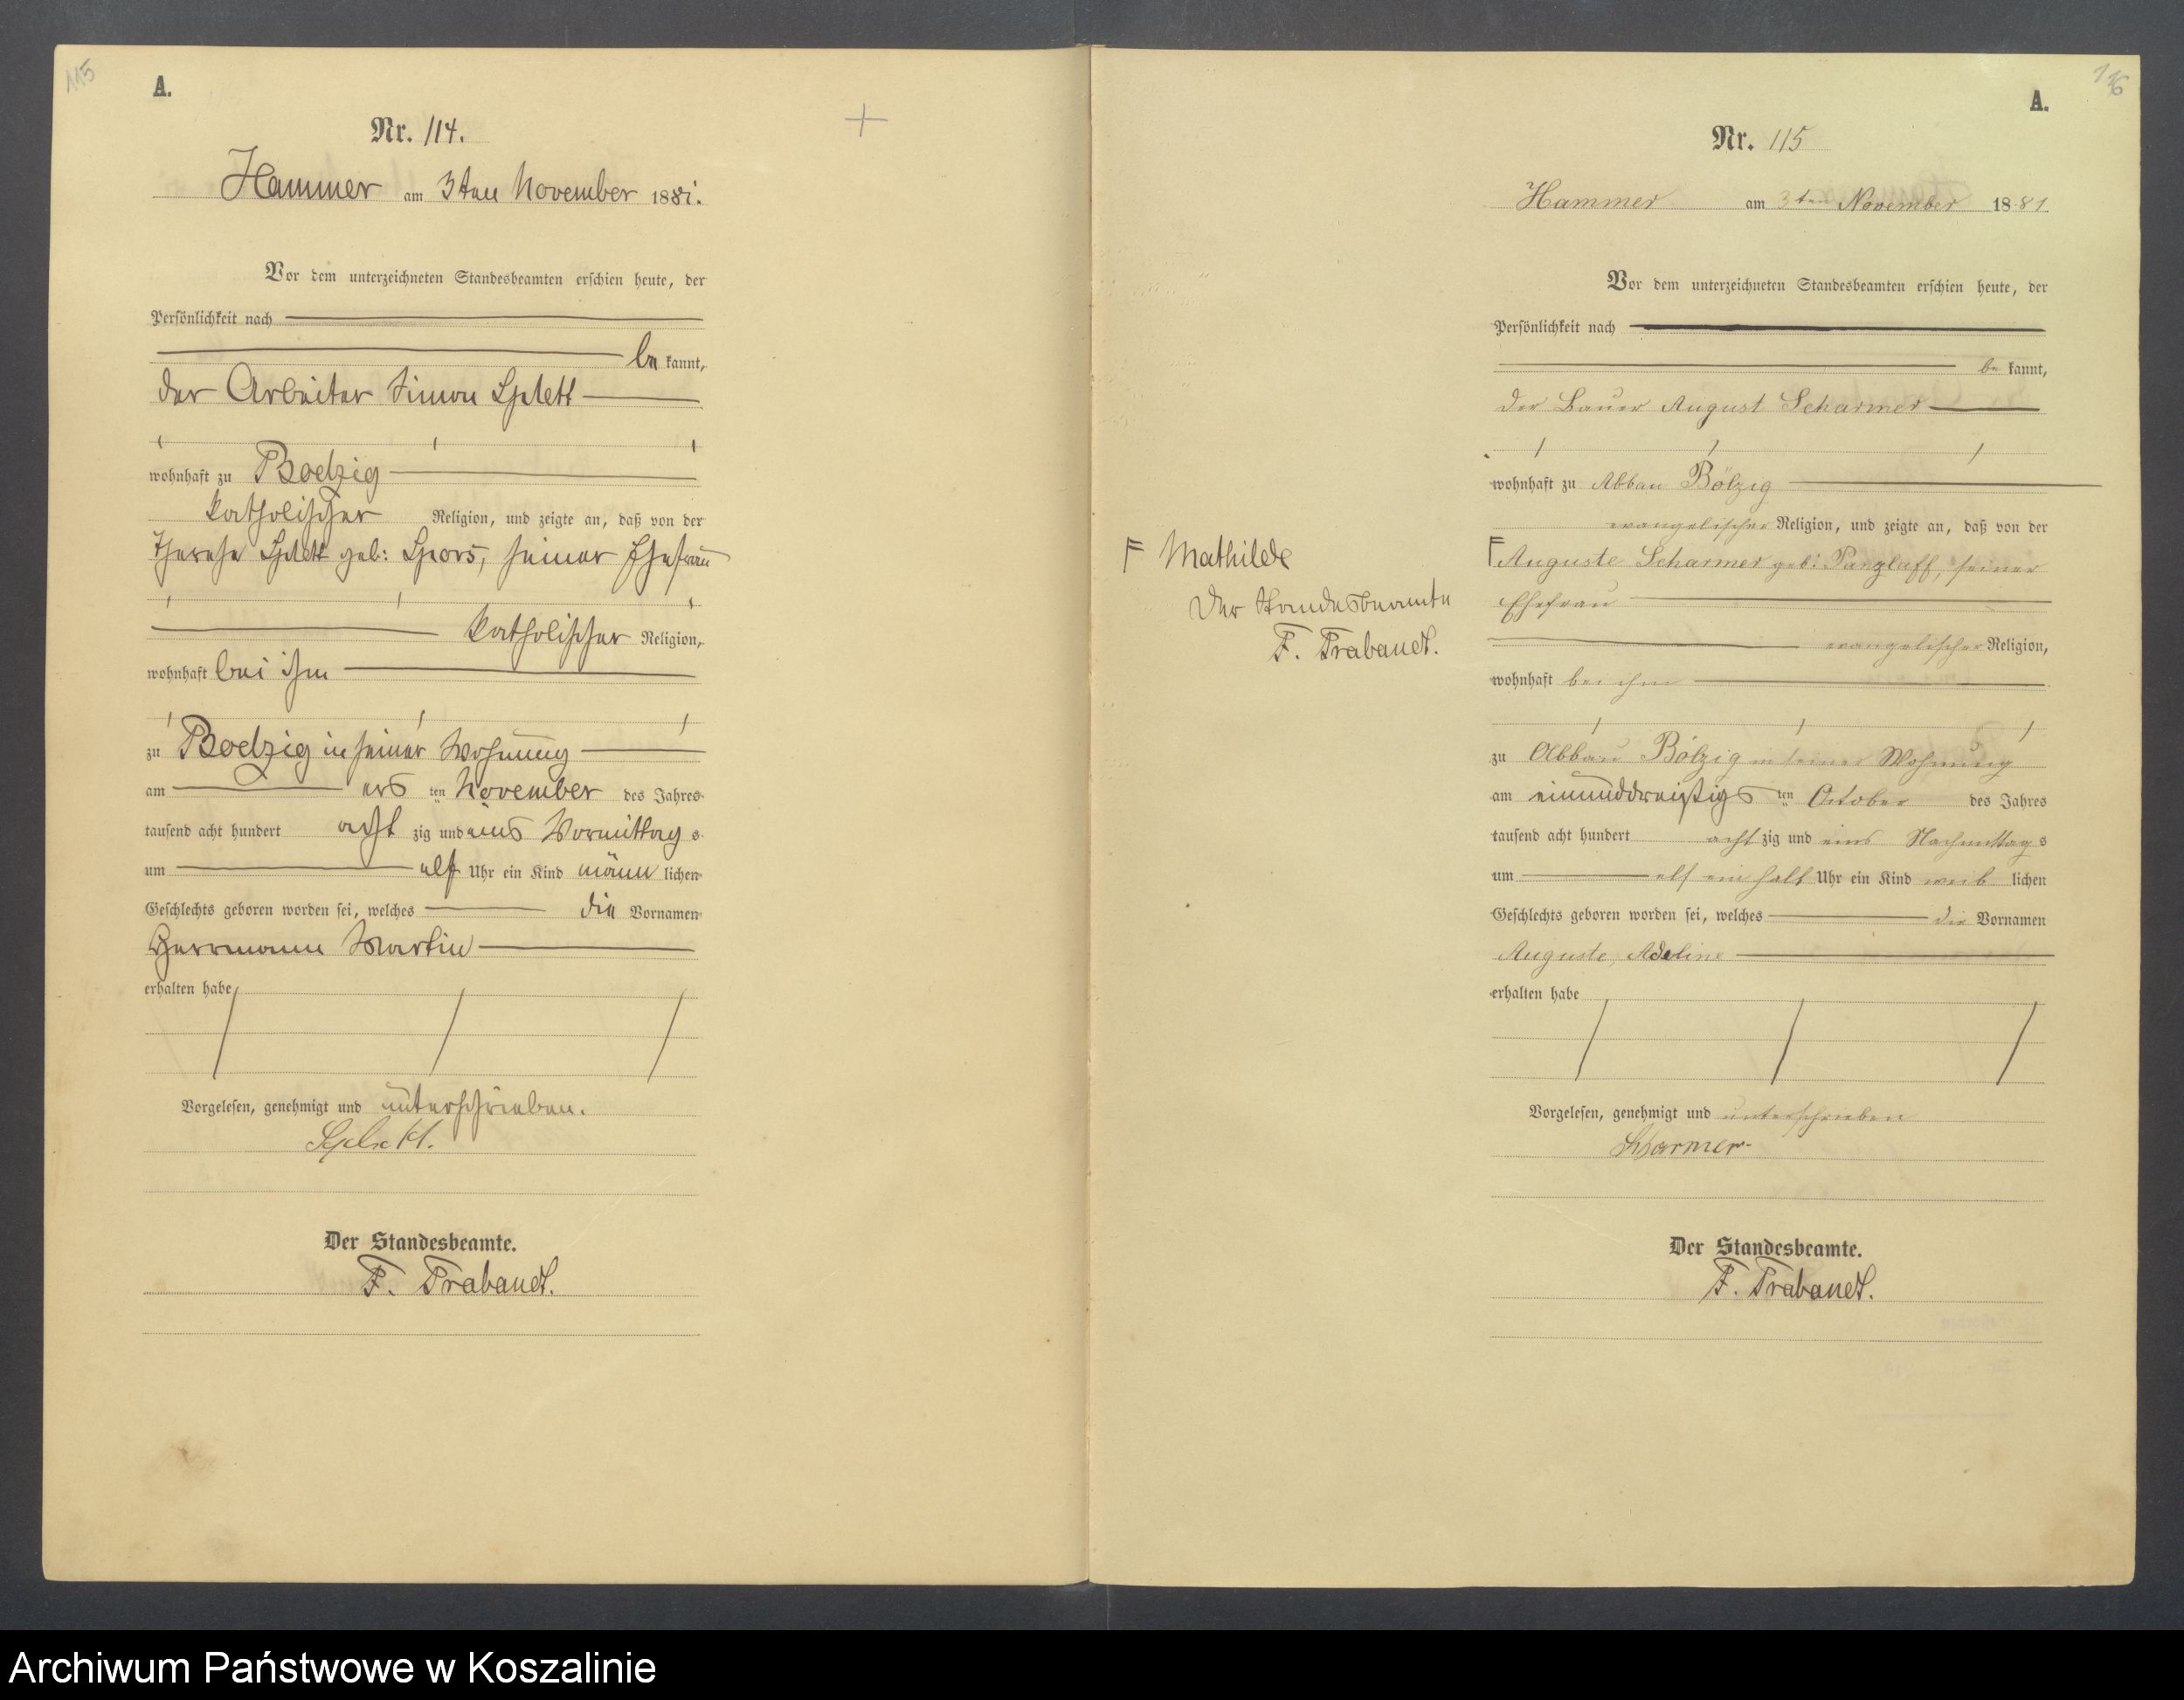 115
A.
Nr. 114.
Hammer am 3ten November 1881.
Vor dem unterzeichneten Standesbeamten erschien heute, der
Persönlichkeit nach
be kannt,
der Arbeiter Simon Splett
wohnhaft zu Boelzig
katholischer Religion, und zeigte an, daß von der
Therese Splett geb: Spors, seiner Ehefrau
katholischer Religion,
wohnhaft bei ihm
zu Boelzig in seiner Wohnung
am ers ten November des Jahres
tausend acht hundert acht zig und eins Vormittag s
um elf Uhr ein Kind männ lichen
Geschlechts geboren worden sei, welches die Vornamen
Herrmann Martin
erhalten habe
Vorgelesen, genehmigt und unterschrieben.
Splett.
Der Standesbeamte.
F. Trabandt.
116
A.
Nr. 115
Hammer am 3ten November 1881
Vor dem unterzeichneten Standesbeamten erschien heute, der
Persönlichkeit nach
be kannt,
der Bauer August Scharmer
wohnhaft zu Abbau Bölzig
evangelischer Religion, und zeigte an, daß von der
F Auguste Scharmer geb: Panzlaff, seiner
Ehefrau
evangelischer Religion,
wohnhaft bei ihm
zu Abbau Bölzig in seiner Wohnung
am einunddreißigs ten October des Jahres
tausend acht hundert acht zig und eins Nachmittag s
um elf ein halb Uhr ein Kind weib lichen
Geschlechts geboren worden sei, welches die Vornamen
Auguste, Adeline
erhalten habe
Vorgelesen, genehmigt und unterschrieben
Scharmer
Der Standesbeamte.
F. Trabandt.
F Mathilde
Der Standesbeamte
F. Trabandt.
Archiwum Państwowe w Koszalinie